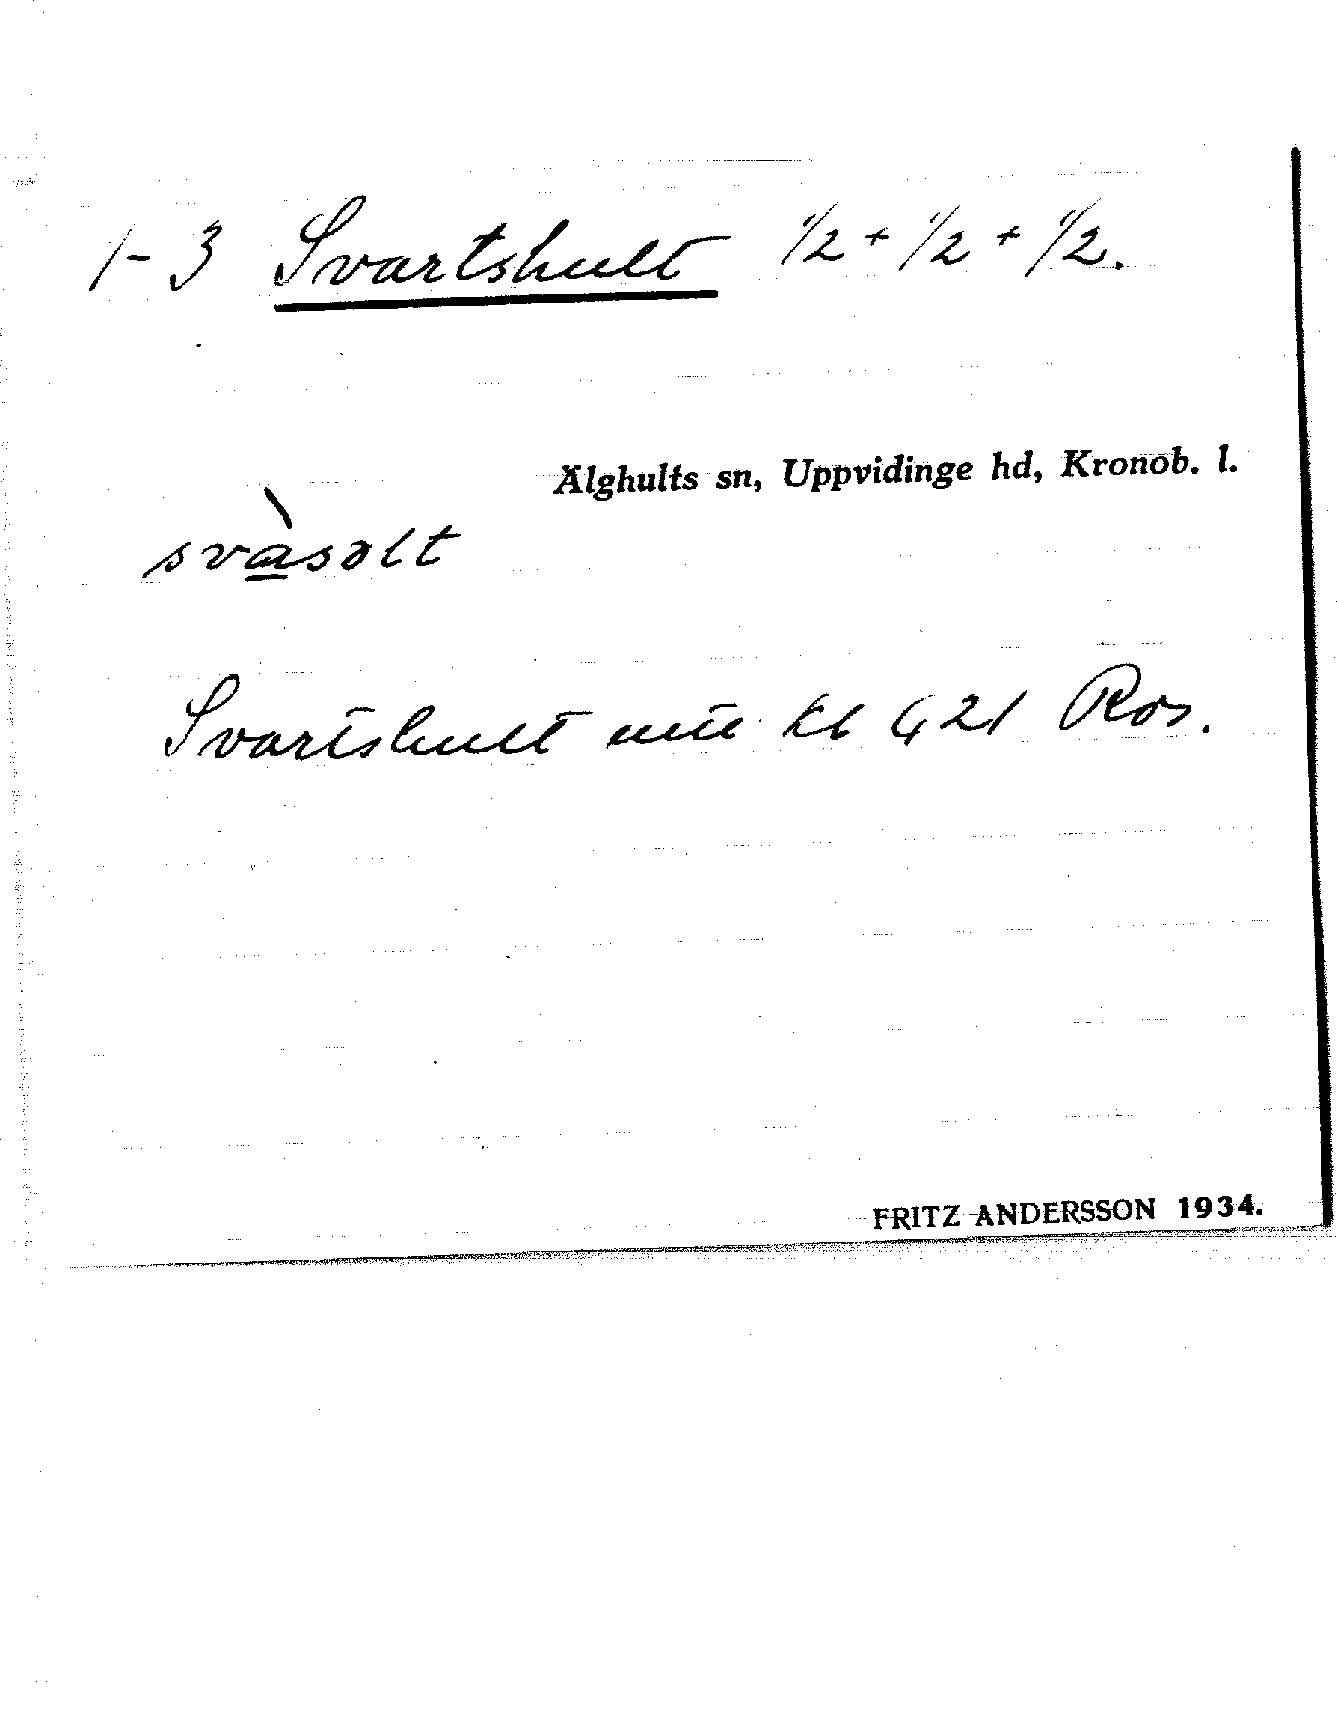 1-3 Svartshult 1/2 + 1/2 + 1/2.
Älghults sn, Uppvidinge hd, Kronob. l.
svàsəlt
Svartshult kl 421 Ros.
FRITZ ANDERSSON 1934.